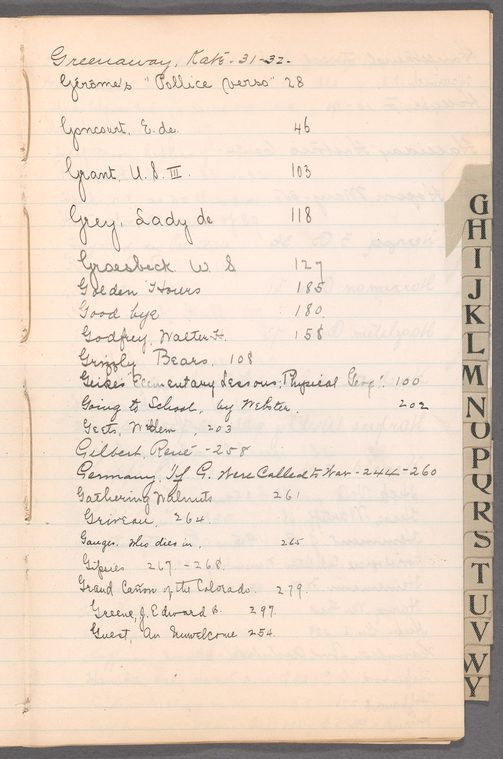 Greenaway, Kate - 31-32.
Gérome's "Pollice verso" 28
Goncourt, E. de. 46
Grant, U. S. III. 103
Grey, Lady de 118
Groesbeck W S 127
Golden Hours 185
Good bye 180.
Godfrey, Walter H. 158
Grizzly Bears. 108
Geikes Elementary Lessons, Physical Geog'. 100
Going to School, by Webster. 202
Geets, Willem, 203
Gilbert, René - 258
Germany, If G. Were Called to War - 244-260
Gathering Walnuts 261
Griveau, 264.
Ganges, Who dies in, 265
Gipsies 267-268.
Grand Cañon of the Colorado. 279.
Greene, J. Edward B. 297.
Guest, An Unwelcome 254.
G
H
I
J
K
L
M
N
O
P
Q
R
S
T
U
V
W
Y